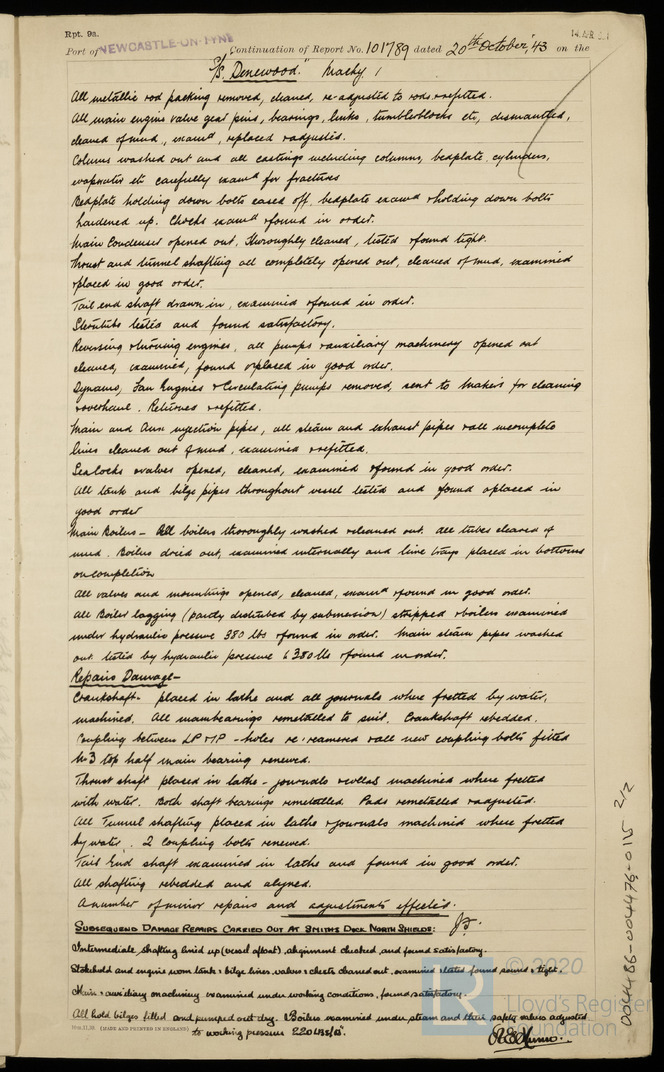 Rpt. 9a.
Port of NEWCASTLE-ON-TYNE Continuation of Report No. 101789 dated 20th October, 43 on the
S/S. "Denewood." Machy. 1
All metallic rod packing removed, cleaned, re-adjusted to rods & refitted.
All main engine valve gear pins, bearings, links, tumblerblocks etc, dismantled,
cleaned of mud, examd, replaced & adjusted.
Columns washed out and all castings including columns, bedplate, cylinders,
evaporator etc carefully examd for fractures
Bedplate holding down bolts eased off, bedplate examd & holding down bolts
hardened up. Chocks examd & found in order.
Main Condenser opened out, thoroughly cleaned, tested & found tight.
Thrust and tunnel shafting all completely opened out, cleaned of mud, examined
& placed in good order.
Tail end shaft drawn in, examined & found in order.
Sterntube tested and found satisfactory.
Reversing & turning engines, all pumps & auxiliary machinery opened out
cleaned, examined, found or placed in good order.
Dynamo, Fan Engines & Circulating pumps removed, sent to Makers for cleaning
& overhaul. Returned & refitted.
Main and Aux injection pipes, all steam and exhaust pipes & all incomplete
lines cleaned out of mud, examined & refitted.
Seacocks & valves opened, cleaned, examined & found in good order.
All tank and bilge pipes throughout vessel tested and found or placed in
good order
Main Boilers - All boilers thoroughly washed & cleaned out. All tubes cleared of
mud. Boilers dried out, examined internally and lime trays placed in bottoms
on completion
All valves and mountings opened, cleaned, examd & found in good order.
All Boiler lagging (partly disturbed by submersion) stripped & boilers examined
under hydraulic pressure 380 lbs & found in order. Main steam pipes washed
out tested by hydraulic pressure to 380 lbs & found in order.
Repairs Damage -
Crankshaft - placed in lathe and all journals where fretted by water,
machined. All main bearings remetalled to suit. Crankshaft rebedded.
Coupling between LP & IP - holes re-reamered & all new coupling bolts fitted
No 3 top half main bearing renewed.
Thrust shaft placed in lathe - journals & collars machined where fretted
with water. Both shaft bearings remetalled. Pads remetalled & adjusted.
All Tunnel shafting placed in lathe & journals machined where fretted
by water. 2 coupling bolts renewed.
Tail End shaft examined in lathe and found in good order.
All shafting rebedded and alyned.
A number of minor repairs and adjustments effected.
SUBSEQUENT DAMAGE REPAIRS CARRIED OUT AT SMITHS DOCK NORTH SHIELDS:
Intermediate shafting lined up (vessel afloat), alignment checked and found satisfactory.
Stokehold and engine room tank & bilge lines valves & chests cleaned out, examined & tested found sound & tight.
Main & auxiliary machinery examined under working conditions, found satisfactory.
All hold bilges filled and pumped out dry. Boilers examined under steam and their safety valves adjusted
to working pressure 220 LBS/□".
(MADE AND PRINTED IN ENGLAND)
004486-004476-0115 2/2
© 2020
Lloyd's Register
Foundation